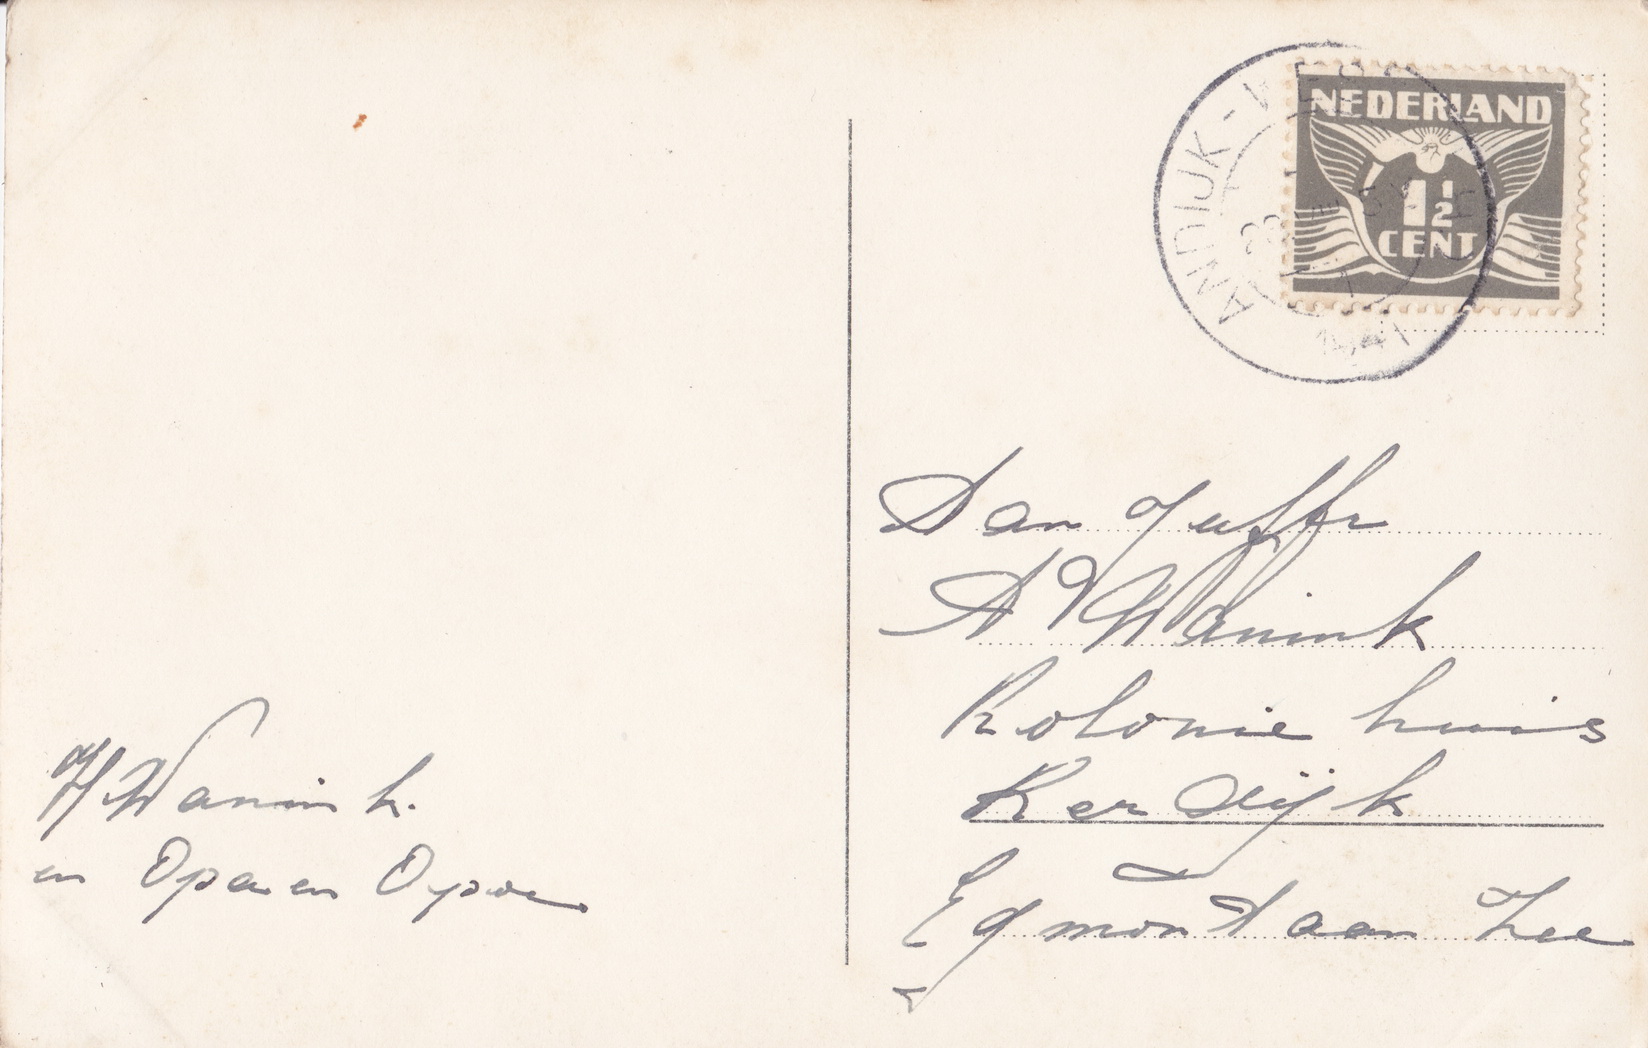 NEDERLAND
1 1/2
CENT
ANDIJK-WEST
H Wanink.
en Opa en Opoe
Aan Juffr
A Wanink
Kolonie huis
Kerdijk
Egmond aan Zee